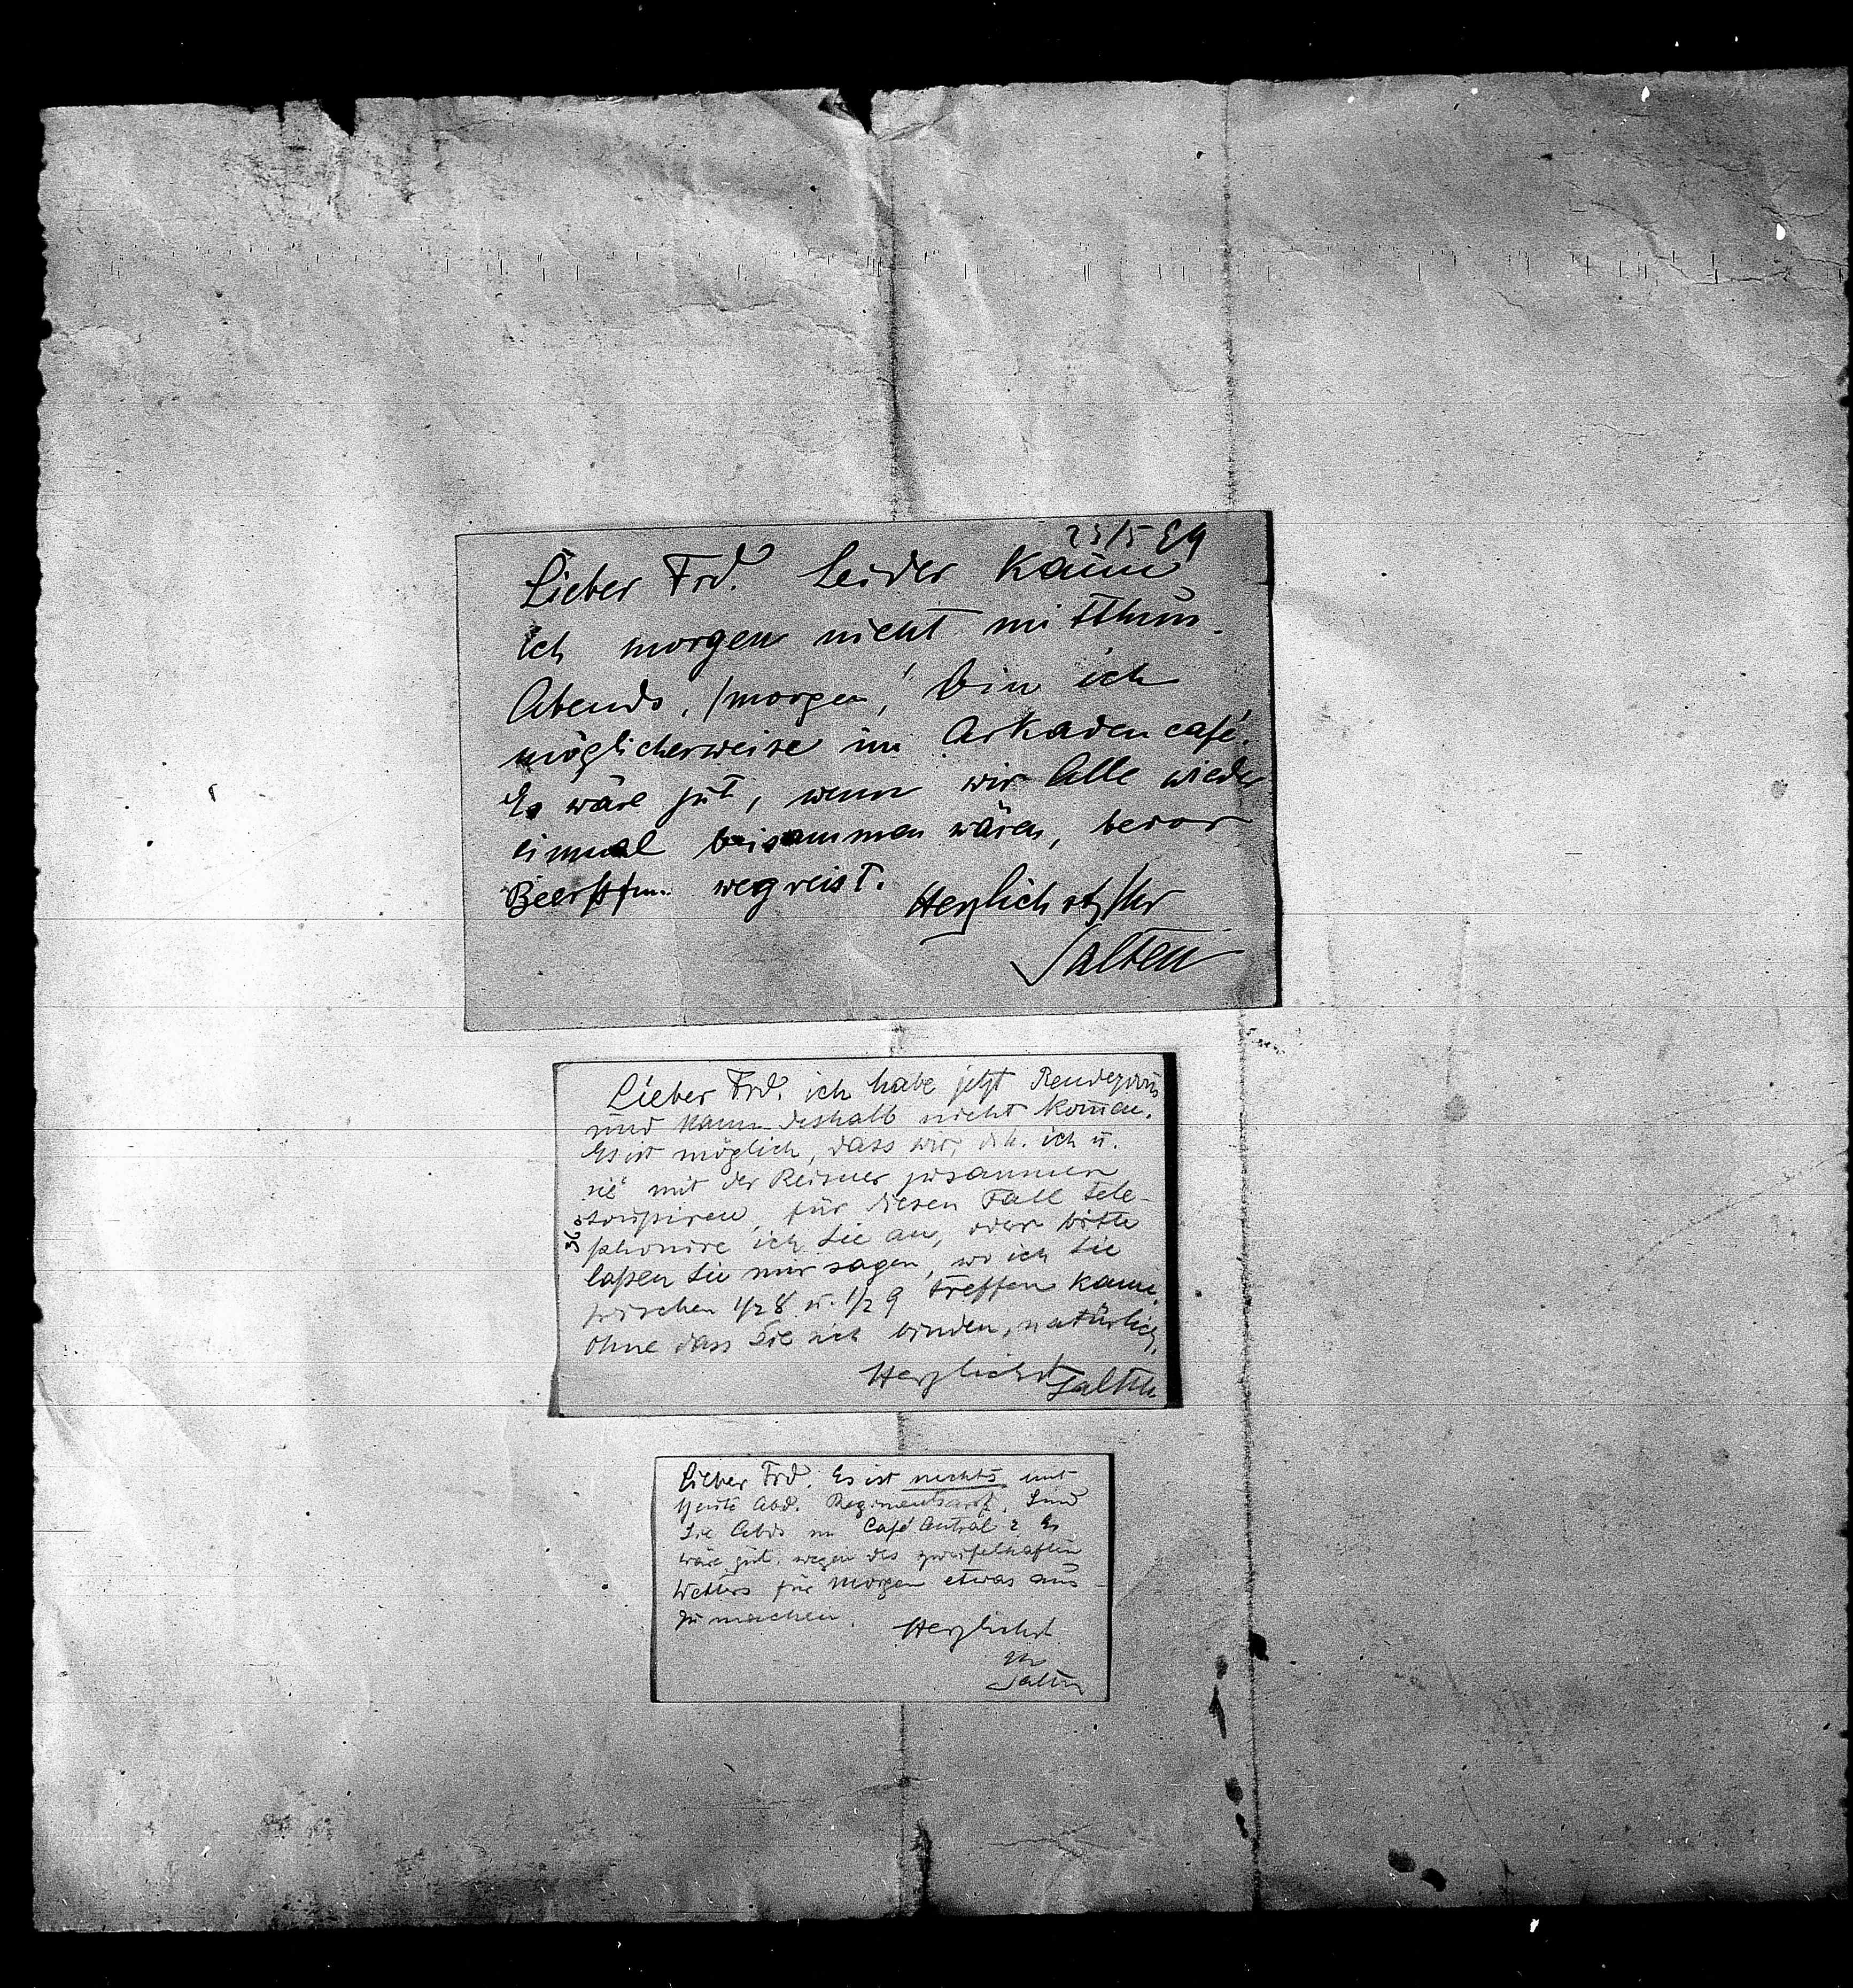 23/5 94
Lieber Frd. Leider kann
ich morgen nicht mitthun.
Abends, /morgen/ bin ich
möglicherweise im Arkadencafé.
Es wäre gut, wenn wir Alle wieder
einmal beisammen wären, bevor
Beerhfm. wegreist.
Herzlichst Ihr
Salten
Lieber Frd. ich habe jetzt Rendezvous
und kann deshalb nicht kommen.
Es ist möglich, dass wir, d. h. ich u.
sie mit der Reisner zusammen
soupiren, für diesen Fall tele-
phonire ich Sie an, oder bitte
laßen Sie mir sagen, wo ich Sie
zwischen 1/2 8 u. 1/2 9 treffen kann.
Ohne dass Sie sich binden, natürlich.
Herzlichst Salten
36
Lieber Frd. Es ist nichts mit
heute Abd. Sind
Sie Abds im Café Central? Es
wäre gut wegen des zweifelhaften
Wetters für Morgen etwas aus-
zumachen.
Herzlichst
Ihr
Salten